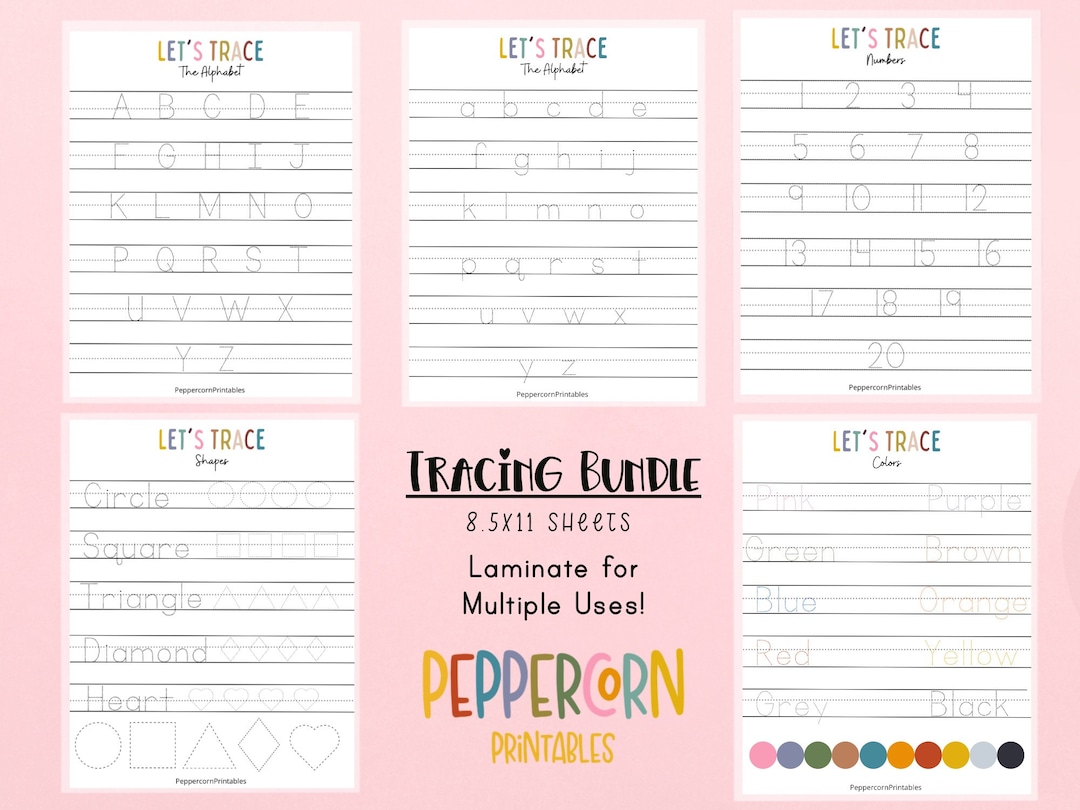 LET'S TRACE
The Alphabet
A B C D E
F G H I J
K L M N O
P Q R S T
U V W X
Y Z
PeppercornPrintables
LET'S TRACE
The Alphabet
a b c d e
f g h i j
k l m n o
p q r s t
u v w x
y z
PeppercornPrintables
LET'S TRACE
Numbers
1 2 3 4
5 6 7 8
9 10 11 12
13 14 15 16
17 18 19
20
PeppercornPrintables
LET'S TRACE
Shapes
Circle
Square
Triangle
Diamond
Heart
PeppercornPrintables
TRACING BUNDLE
8.5X11 SHEETS
Laminate for
Multiple Uses!
PEPPERCORN
PRINTABLES
LET'S TRACE
Colors
Pink Purple
Green Brown
Blue Orange
Red Yellow
Grey Black
PeppercornPrintables